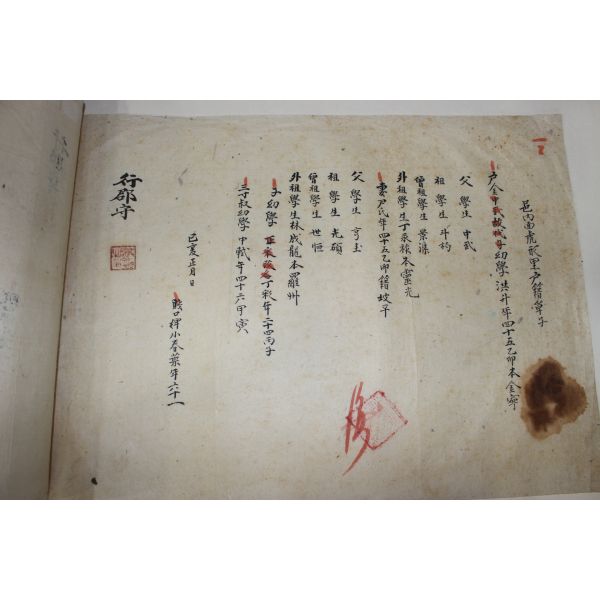 邑內面虎形里戶籍單子
戶金中武故代子幼學洪斗年四十五乙卯本金寧
父學生中武
祖學生斗杓
曾祖學生景漢
外祖學生丁來根本靈光
妻尹氏年四十五乙卯籍坡平
父學生亨圭
祖學生光碩
曾祖學生世恒
外祖學生林成龍本羅州
子幼學 丁彩年二十四丙子
三寸叔幼學中軾年四十六甲寅
賤口婢小春葉年六十一
己亥正月日
行郡守